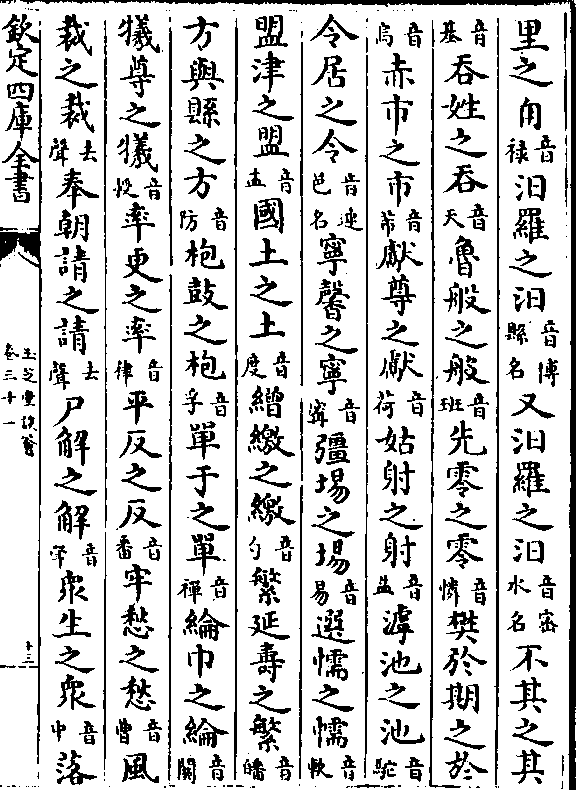 里之甪音祿汨羅之汨音博縣名又汨羅之汨音密水名不其之其
音基吞姓之吞音天魯般之般音班先零之零音憐樊於期之於
音烏赤巿之巿音芾獻尊之獻音荷姑射之射音益滹池之池音駝
令居之令音連邑名寧馨之寧音甯彊埸之埸音易選懦之懦音軟
盟津之盟音孟國土之土音度繒繳之繳音勺繁延壽之繁音皤
方與縣之方音防枹鼓之枹音孚單于之單音禪綸巾之綸音關
犧尊之犧音率更之率音律平反之反音番牢愁之愁音曹風
裁之裁去聲奉朝請之請去聲尸解之解音眾生之眾音中落
欽定四庫全書
玉芝堂談薈
卷三十一
十三